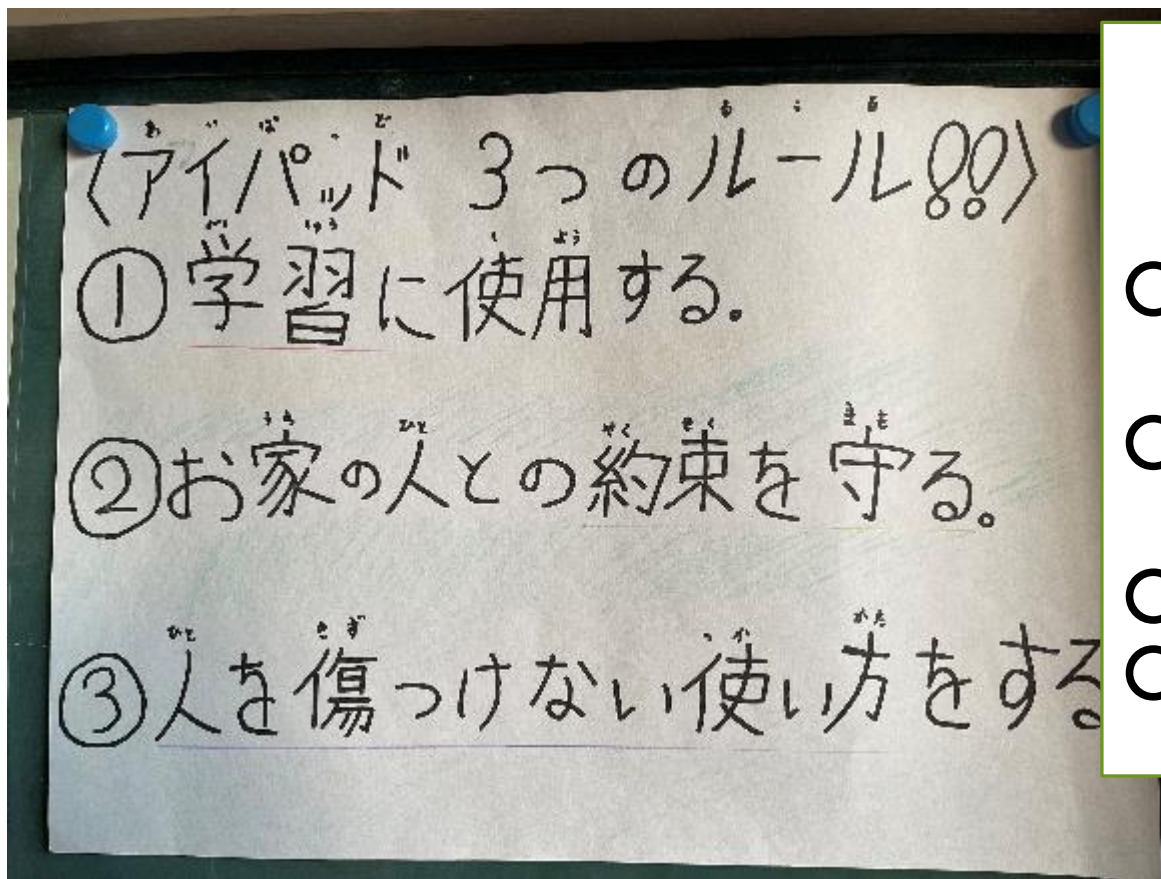 〈アイパッド 3つのルール!!〉
①学習に使用する.
②お家の人との約束を守る。
③人を傷つけない使い方をする